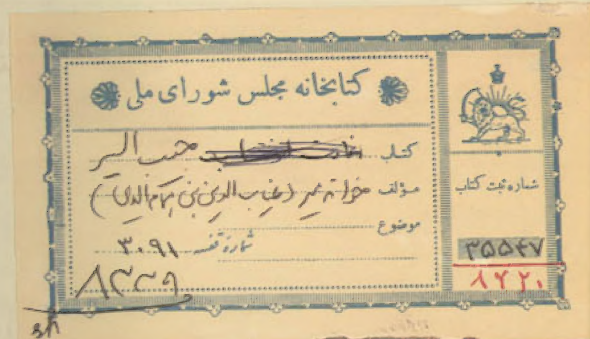 کتابخانه مجلس شورای ملی
کتاب حبیب السیر
مؤلف خواند میر (غیاث الدین بن همام الدین)
موضوع
شمارهٔ قفسه ۳۰۹۱
شماره ثبت کتاب
۳۵۵۴۷
۸۷۲۰